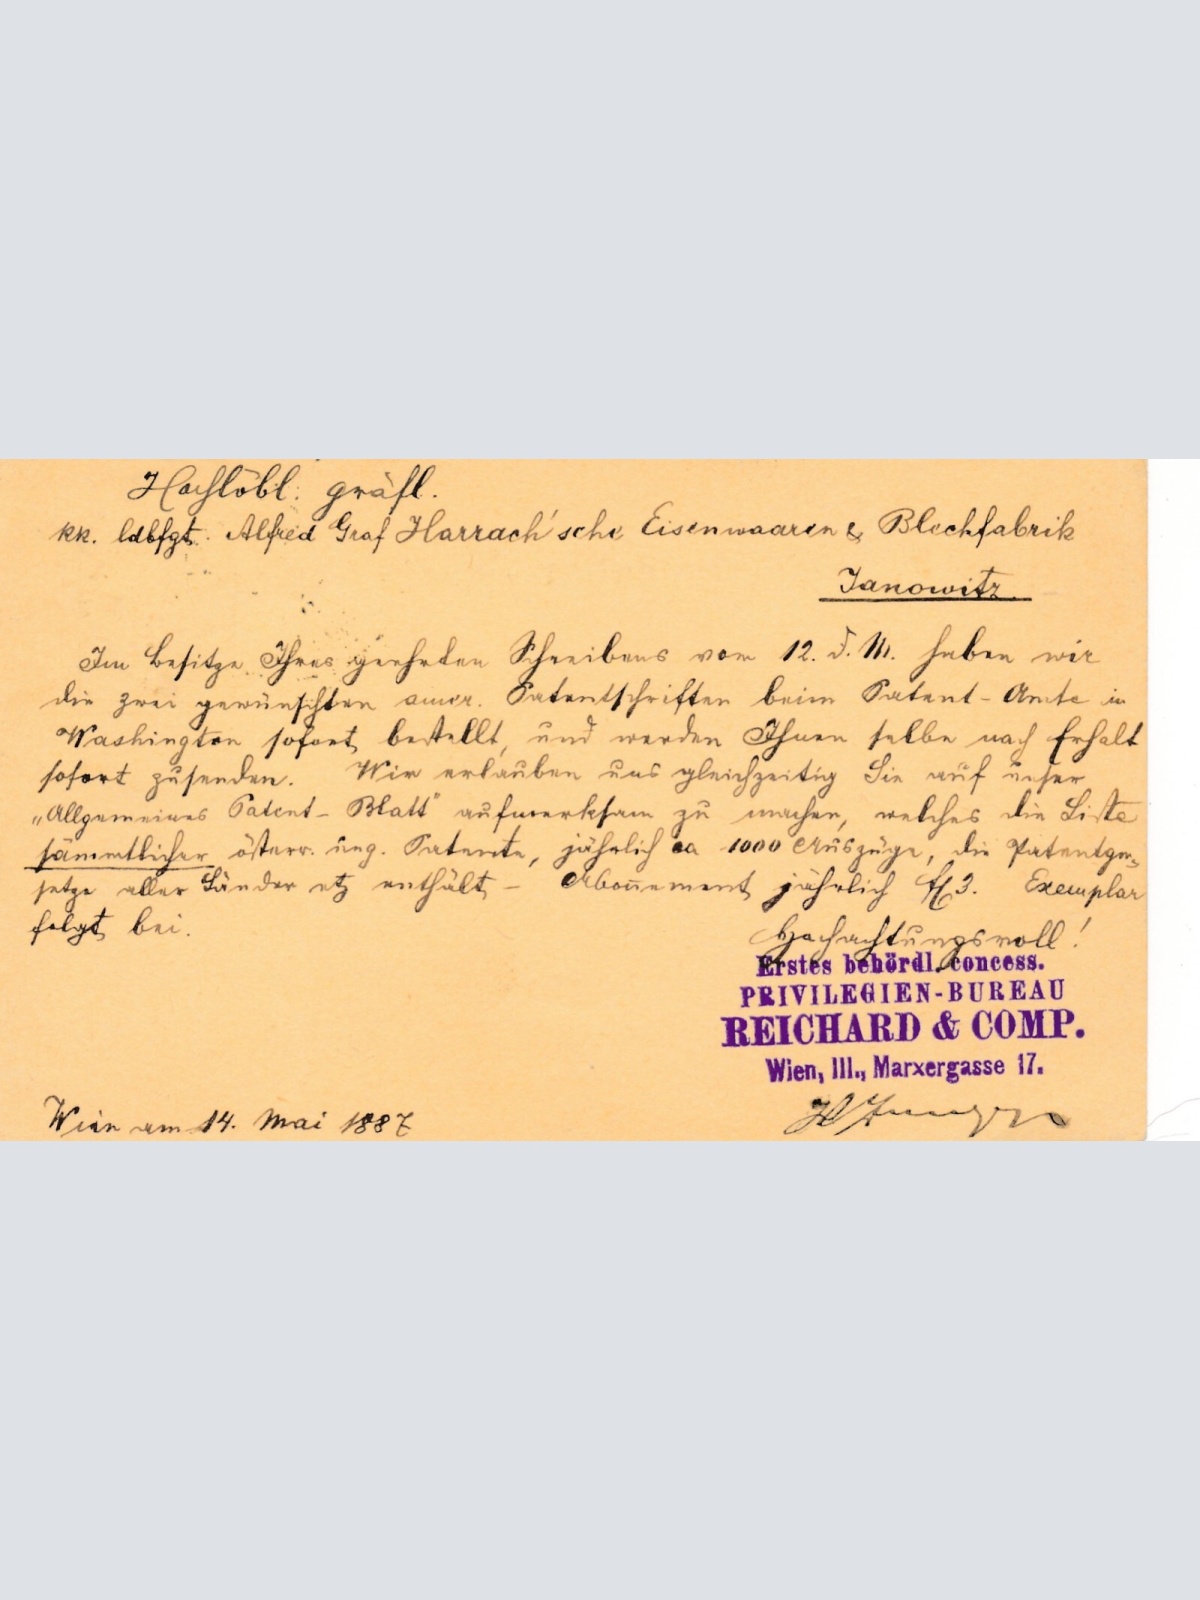 Hochlöbl. gräfl.
kk. ldbfgt. Alfred Graf Harrach'sche Eisenwaaren & Blechfabrik
Janowitz.
Im Besitze Ihres geehrten Schreibens vom 12. d. M. haben wir
die zwei gewünschten amer. Patentschriften beim Patent-Amte in
Washington sofort bestellt, und werden Ihnen selbe nach Erhalt
sofort zusenden. Wir erlauben uns gleichzeitig Sie auf unser
„Allgemeines Patent-Blatt" aufmerksam zu machen, welches die Liste
sämmtlicher österr. ung. Patente, jährlich ca 1000 Auszüge, die Patentge-
setze aller Länder etz enthält – Abonnement jährlich fl 3. Exemplar
folgt bei.
Hochachtungsvoll!
Erstes behördl. concess.
PRIVILEGIEN-BUREAU
REICHARD & COMP.
Wien, III., Marxergasse 17.
Wien am 14. Mai 1887